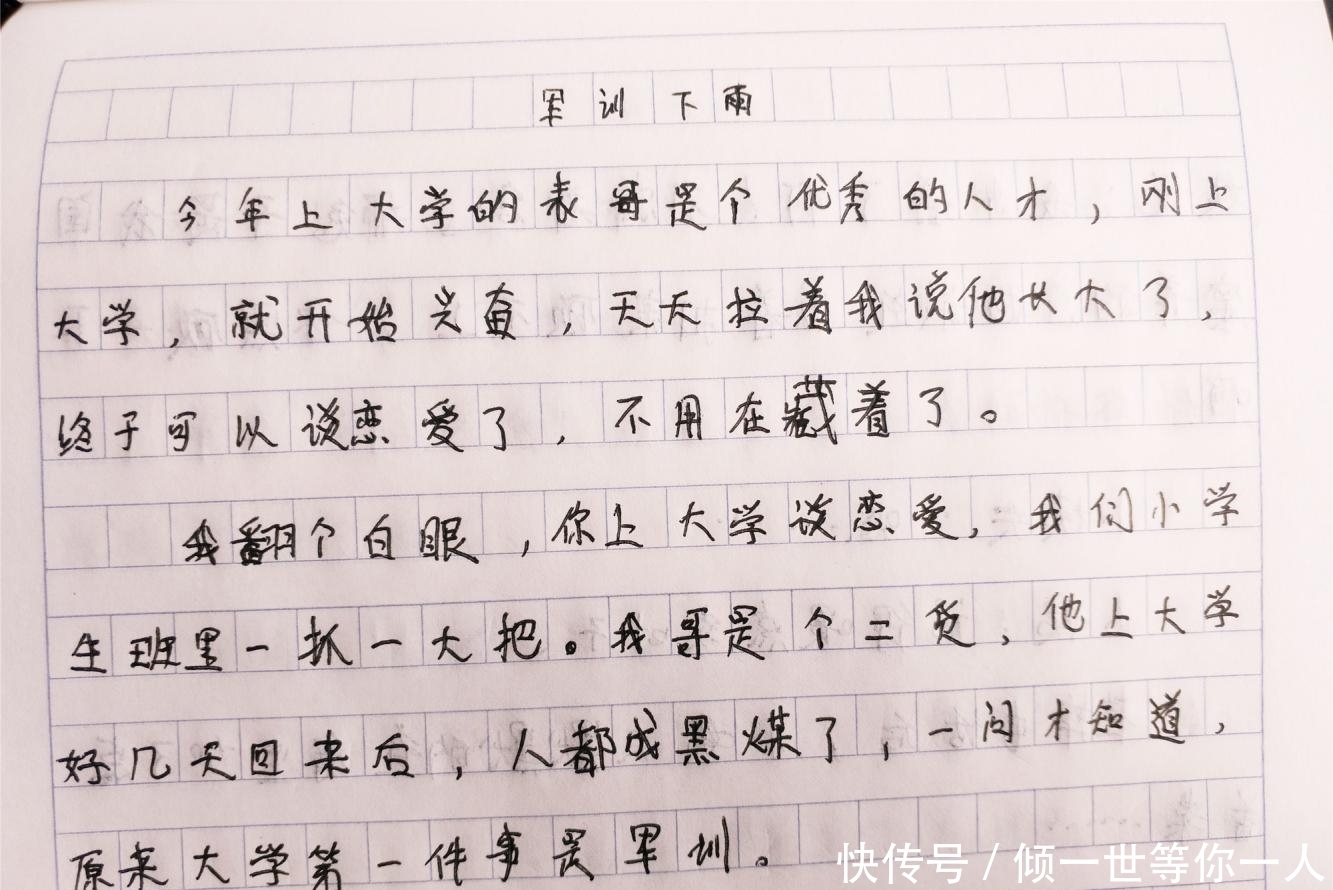 军训下雨
今年上大学的表哥是个优秀的人才，刚上
大学，就开始兴奋，天天拉着我说他长大了，
终于可以谈恋爱了，不用在藏着了。
我翻个白眼，你上大学谈恋爱，我们小学
生班里一抓一大把。我哥是个二货，他上大学
好几天回来后，人都成黑煤了，一问才知道，
原来大学第一件事是军训。
快传号/倾一世等你一人